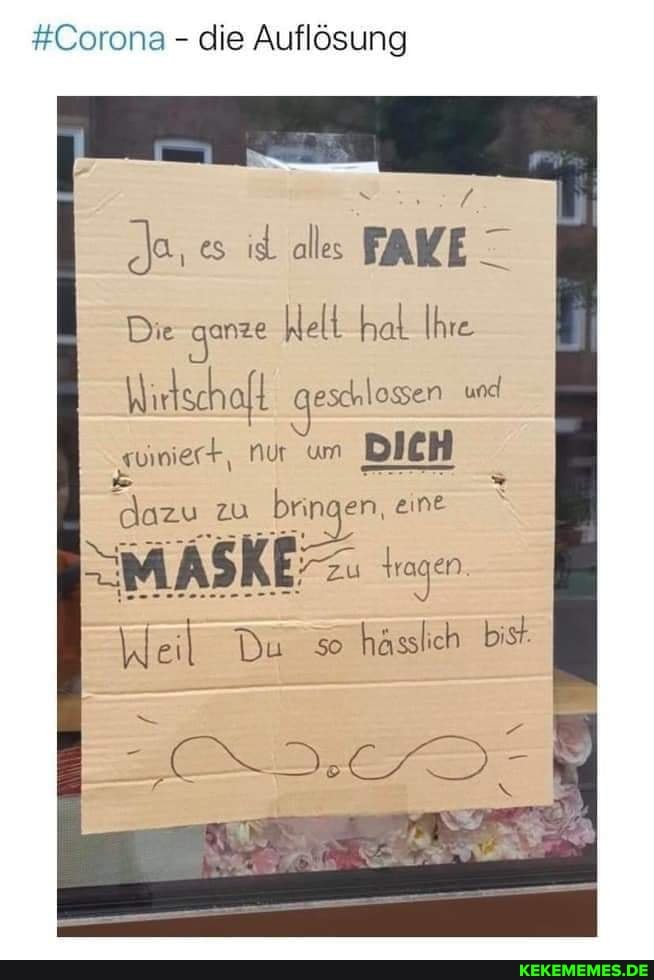 #Corona - die Auflösung
Ja, es ist alles FAKE
Die ganze Welt hat Ihre
Wirtschaft geschlossen und
ruiniert, nur um DICH
dazu zu bringen, eine
MASKE zu tragen.
Weil Du so hässlich bist.
KEKEMEMES.DE